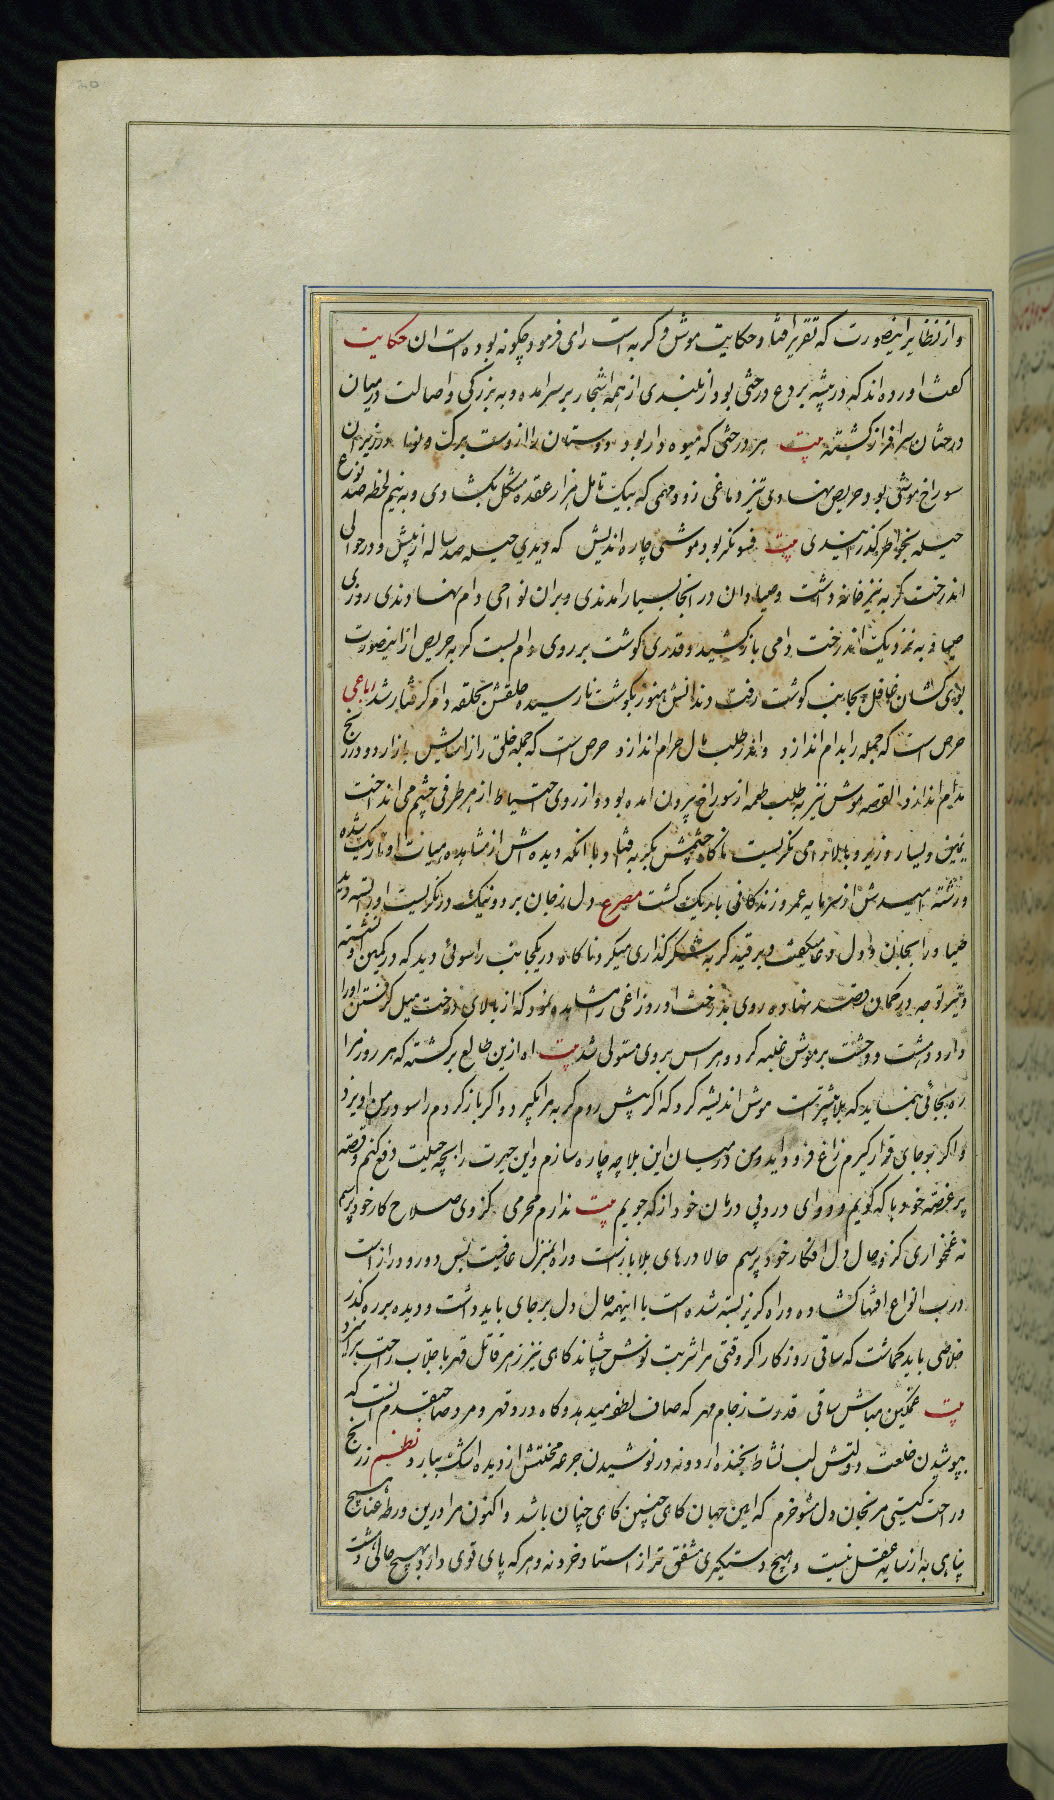 و از نظایر اینصورت که تقریر افتاد حکایت موش و کربه است رای فرمود چکونه بوده است ان حکایت
کفت اورده اند که در بیشه بردع درختی بود از بلندی از همه اشجار بر سر امده و به بزرکی و اصالت در میان
درختان سرافراز کشته بیت هر درختی که میوه دار بود دوستان را ازوست برک و نوا در زیر ان
سوراخ موشی بود حریص نهادی تیز دماغی زود فهمی که بیک تامل هزار عقده مشکل بکشادی و به نیم لحظه صد نوع
حیله بخاطر کذرانیدی بیت فسونکر بود موشی چاره اندیش که دیدی حیله صد ساله از پیش و در حوالی
اندرخت کربه نیز خانه داشت و صیادان در انجا بسیار امدندی و بران نواحی دام نهادندی روزی
صیاد به نزدیک اندرخت دامی باز کشید و قدری کوشت بر روی دام بست کربه حریص از اینصورت
غافل بوی کشان بجانب کوشت رفت دندانش هنوز بکوشت نارسیده حلقش بحلقه دام کرفتار شد رباعی
حرص است که جمله را بدام اندازد و اندر طلب مال حرام اندازد حرص است که جمله خلق را از اسایش باز ارد و در رنج
مدام اندازد القصه موش نیز به طلب طعمه از سوراخ بیرون امده بود و از روی احتیاط از هر طرفی چشم می انداخت
یمین و یسار و زیر و بالا را می نکریست ناکاه چشمش بکربه افتاد با انکه دیده اش از مشاهده او تاریک شده
و رشته امیدش از سرمایه عمر و زندکانی باریک کشت مصرع دل ز جان برد و نیک درنکریست او را بسته دید
صیاد را بجان و دل دعا میکفت و بر قید کربه شکر کذاری میکرد ناکاه در یکجانب راسوئی دید که در کمین او نشسته
و تیر توجه در کمان قصد نهاده روی بدرخت اورد زاغی را مشاهده نمود که از بالای درخت میل کرفتن او را
دارد دهشت و وحشت بر موش غلبه کرد و هراس بر وی مستولی شد بیت اه ازین طالع برکشته که هر روز مرا
ره بجائی بنماید که بلا بیشتر است موش اندیشه کرد که اکر پیش روم کربه مرا بکیرد و اکر باز کردم راسو در من اویزد
و اکر بر جای قرار کیرم زاغ فرود اید و من در میان این بلا چه چاره سازم و این حیرت را بچه حیلت دفع کنم و قصه
پر غصه خود با که کویم و دوای درد بی درمان خود از که جویم بیت ندارم محرمی کز وی صلاح کار خود پرسم
نه غمخواری کزو حال دل افکار خود پرسم حالا درهای بلا باز است و راه منزل عافیت بس دور و دراز است
درب انواع افتها کشاده و راه کریز بسته شده است با اینهمه حال دل بر جای باید داشت و دیده بر ره کذر
خلاصی باید کماشت که ساقی روزکار اکر وقتی مرا شربت نوش چشاند کاهی نیز زهر قاتل قهر با جلاب راحت برامیزد
بیت غمکین مباش ساقی قدرت ز جام مهر که صاف لطف میدهد و کاه درد قهر و مرد صاحبقدم انست که
بپوشیدن خلعت دولتش لب نشاط بخنده ارد و نه در نوشیدن جرعه محنتش از دیده اشک ببارد نظم ز رنج
و راحت کیتی مرنجان دل مشو خرم که ایین جهان کاهی چنین کاهی چنان باشد و اکنون مرا درین ورطه عنا هیچ
پناهی به از سایه عقل نیست و هیچ دستکیری مشفق تر از استاد خرد نه و هر که پای قوی دارد بهیچ حال دهشت